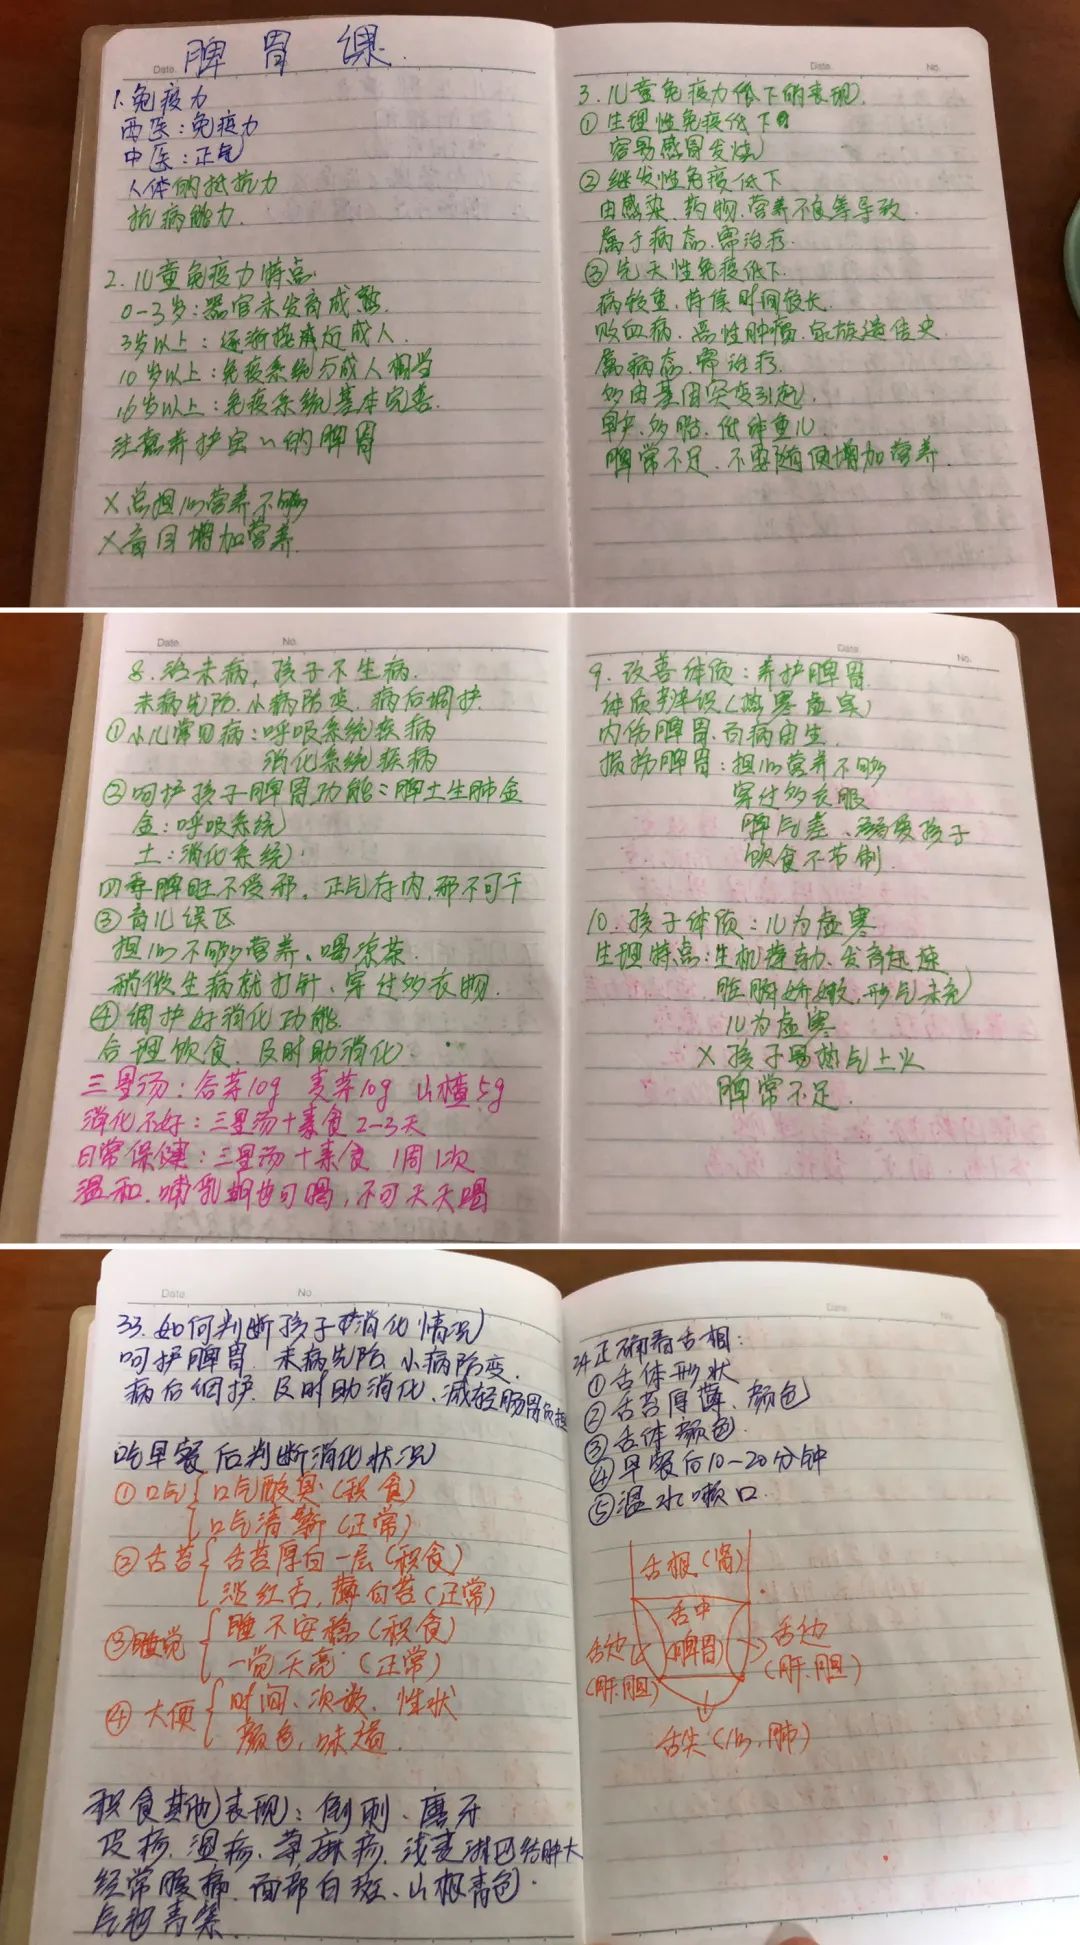 Date.
脾胃课.
1.免疫力
西医:免疫力
中医:正气
人体的抵抗力
抗病能力.
2.儿童免疫力特点.
0-3岁:器官未发育成熟.
3岁以上:逐渐接近成人.
10岁以上:免疫系统与成人相当
16岁以上:免疫系统基本完善.
注意养护宝宝的脾胃
×总担心营养不够
×盲目增加营养.
Date.
No.
3.儿童免疫力低下的表现.
①生理性免疫低下.
容易感冒发烧
②继发性免疫低下
由感染.药物.营养不良等导致.
属于病态.需治疗.
③先天性免疫低下.
病较重,持续时间较长.
败血病.恶性肿瘤.家族遗传史
属病态.需治疗.
多由基因突变引起.
早产.多胎.低体重儿
脾常不足.不要随便增加营养.
Date.
No.
8.治未病,孩子不生病.
未病先防.小病防变.病后调护.
①小儿常见病:呼吸系统疾病
消化系统疾病
②呵护孩子脾胃功能:脾土生肺金
金:呼吸系统
土:消化系统
四季脾旺不受邪.正气存内,邪不可干
③育儿误区
担心不够营养、喝凉茶.
稍微生病就打针、穿过多衣物.
④调护好消化功能.
合理饮食.及时助消化.
三星汤:谷芽10g 麦芽10g 山楂5g
消化不好:三星汤+素食 2-3天
日常保健:三星汤+素食 1周1次
温和.哺乳期也可喝,不可天天喝
Date.
No.
9.改善体质:养护脾胃.
体质辨识(热寒虚实)
内伤脾胃.百病由生.
损伤脾胃:担心营养不够
穿过多衣服
脾气差、溺爱孩子
饮食不节制.
10.孩子体质:儿为虚寒
生理特点:生机蓬勃.发育迅速
脏腑娇嫩,形气未充
儿为虚寒
×孩子易热气上火
脾常不足.
Date.
No
33.如何判断孩子消化情况
呵护脾胃.未病先防.小病防变.
病后调护.及时助消化、减轻肠胃负担
吃早餐后判断消化状况
①口气{口气酸臭(积食)
口气清新(正常)
②舌苔{舌苔厚白一层(积食)
淡红舌,薄白苔(正常)
③睡觉{睡不安稳(积食)
一觉天亮(正常)
④大便{时间、次数、性状
颜色,味道.
积食其他表现:倒刺、磨牙
皮疹.湿疹.荨麻疹.浅表淋巴结肿大
经常腹痛.面部白斑、山根青色.
Date.
No.
34正确看舌相:
①舌体形状
②舌苔厚薄、颜色
③舌体颜色.
④早餐后10-20分钟
⑤温水漱口.
舌根(肾)
舌中
(脾胃)
舌边
(肝.胆)
舌边
(肝.胆)
舌尖(心,肺)